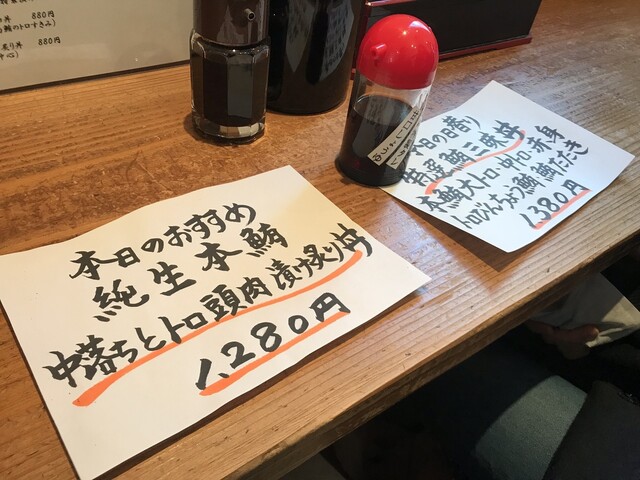 880円
880円
本日のおすすめ
純生本鮪
中落ちとトロ頭肉漬け炙り丼
1,280円
本日の日替り
特選鮪三昧丼
本鮪大トロ・中トロ・赤身
トロびんちょう鮪 鮪たたき
1,380円